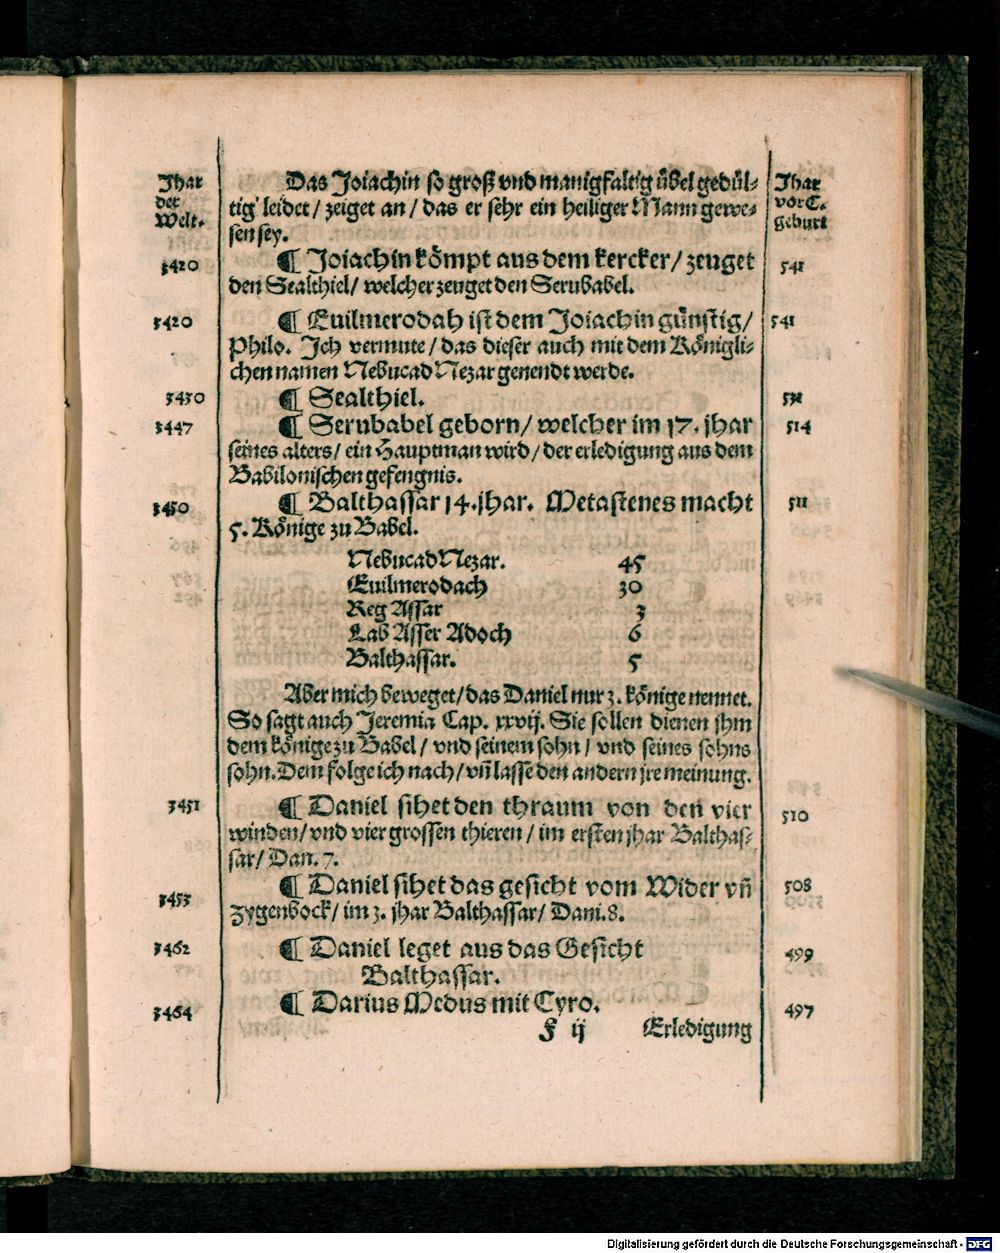 Jhar der Welt.
Jhar vor C. geburt
Das Joiachin so groß vnd manigfaltig übel gedül⸗
tig leidet / zeiget an / das er sehr ein heiliger Mann gewe⸗
sen sey.
3420 ¶ Joiachin kömpt aus dem kercker / zeuget 541
den Sealthiel / welcher zeuget den Serubabel.
3420 ¶ Euilmerodah ist dem Joiachin günstig / 541
Philo. Jch vermute / das dieser auch mit dem Königli⸗
chen namen NebucadNezar genendt werde.
3430 ¶ Sealthiel. 531
3447 ¶ Serubabel geborn / welcher im 17. jhar 514
seines alters / ein Hauptman wird / der erledigung aus dem
Babilonischen gefengnis.
3450 ¶ Balthassar 14. jhar. Metastenes macht 511
5. Könige zu Babel.
NebucadNezar. 45
Euilmerodach 30
Reg Assar 3
Lab Asser Adoch 6
Balthassar. 5
Aber mich beweget / das Daniel nur 3. könige nennet.
So sagt auch Jeremia Cap. xxvij. Sie sollen dienen jhm
dem könige zu Babel / vnd seinem sohn / vnd seines sohns
sohn. Dem folge ich nach / vñ lasse den andern jre meinung.
3451 ¶ Daniel sihet den thraum von den vier 510
winden / vnd vier grossen thieren / im ersten jhar Balthas⸗
sar / Dan. 7.
3453 ¶ Daniel sihet das gesicht vom Wider vñ 508
Zygenbock / im 3. jhar Balthassar / Dani. 8.
3462 ¶ Daniel leget aus das Gesicht 499
Balthassar.
3464 ¶ Darius Medus mit Cyro. 497
F ij Erledigung
Digitalisierung gefördert durch die Deutsche Forschungsgemeinschaft - DFG